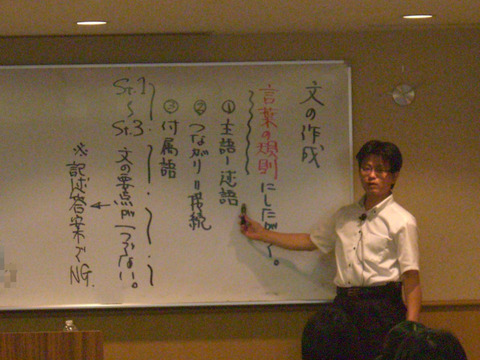 文の作成
言葉の規則にしたがう。
① 主語ー述語
② つながり=接続
③ 付属語
St.1～St.3 文の要点がつづかない。
※記述答案でNG.